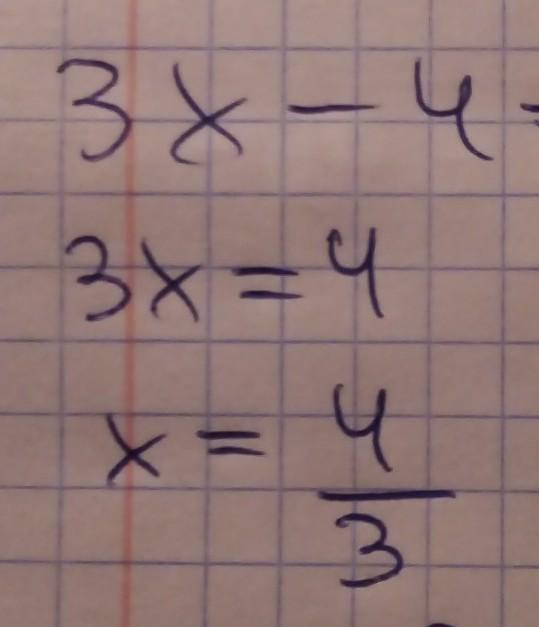 3x - 4
3x = 4
x = 4/3